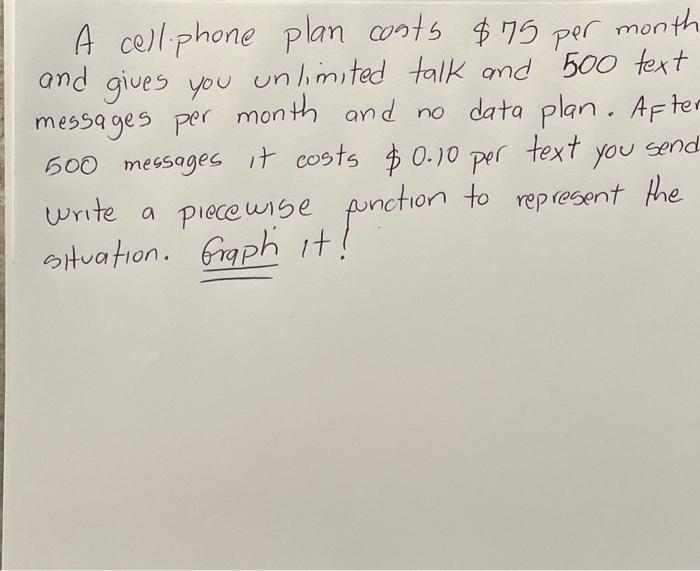 A cell.phone plan costs $75 per month
and gives you unlimited talk and 500 text
messages per month and no data plan. After
500 messages it costs $0.10 per text you send
write a piecewise function to represent the
situation. Graph it!